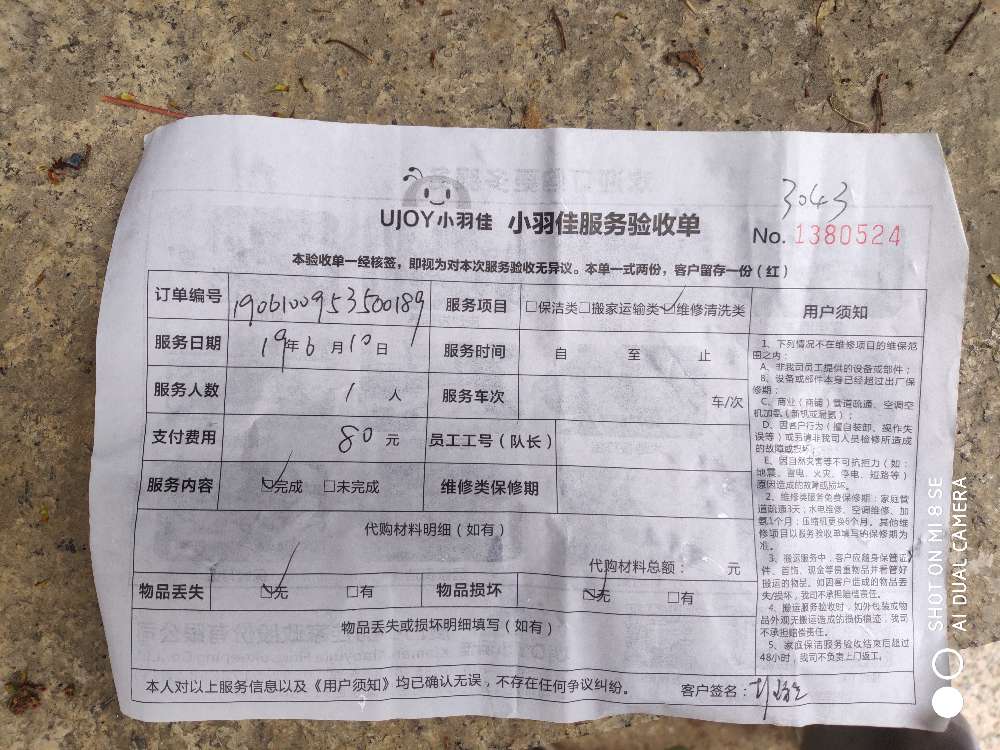 3043
UJOY小羽佳 小羽佳服务验收单
No. 1380524
本验收单一经核签，即视为对本次服务验收无异议。本单一式两份，客户留存一份（红）
订单编号 1906100953500189 服务项目 □保洁类□搬家运输类☑维修清洗类
服务日期 19年6月10日 服务时间 自 至 止
服务人数 1 人 服务车次 车/次
支付费用 80 元 员工工号（队长）
服务内容 ☑完成 □未完成 维修类保修期
代购材料明细（如有）
代购材料总额： 元
物品丢失 ☑无 □有 物品损坏 ☑无 □有
物品丢失或损坏明细填写（如有）
本人对以上服务信息以及《用户须知》均已确认无误，不存在任何争议纠纷。 客户签名：
用户须知
1、下列情况不在维修项目的维保范
围之内：
A、非我司员工提供的设备或部件；
B、设备或部件本身已经超过出厂保
修期；
C、商业（商铺）管道疏通、空调空
机加氨（新机或漏氨）；
D、因客户行为（擅自装卸、操作失
误等）或另请非我司人员检修所造成
的故障或损坏；
E、因自然灾害等不可抗拒力（如：
地震、雷电、火灾、停电、短路等）
原因造成的故障或损坏。
2、维修类服务免费保修期：家庭管
道疏通3天；水电维修、空调维修、加
氨1个月；压缩机更换6个月。其他维
修项目以服务验收单填写的保修期为
准。
3、搬运服务中，客户应随身保管证
件、首饰、现金等贵重物品并看管好
搬运的物品。如因客户造成的物品丢
失/损坏，我司不承担赔偿责任。
4、搬运服务验收时，如外包装或物
品外观无搬运造成的损伤痕迹，我司
不承担赔偿责任。
5、家庭保洁服务验收结束后超过
48小时，我司不负责上门返工。
SHOT ON MI 8 SE
AI DUAL CAMERA